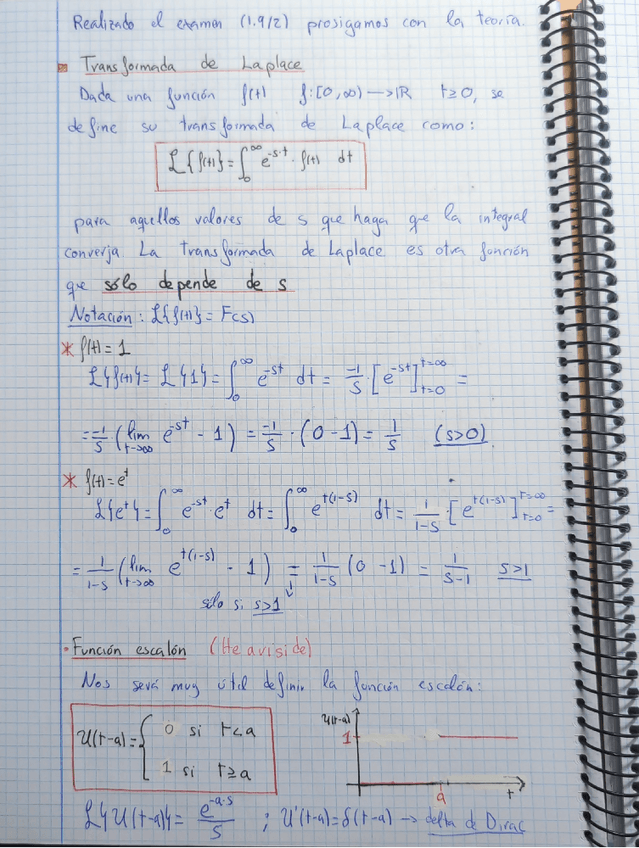 Realizado el examen (1.9/2) prosigamos con la teoría.
Transformada de Laplace
Dada una función f(t) f:[0,∞)→ℝ t≥0, se
define su transformada de Laplace como:
ℒ{f(t)} = ∫₀^∞ e^(-s·t) · f(t) dt
para aquellos valores de s que haga que la integral
converja La transformada de Laplace es otra función
que sólo depende de s
Notación: ℒ{f(t)} = F(s)
* f(t) = 1
ℒ{f(t)} = ℒ{1} = ∫₀^∞ e^(-st) dt = -1/s [e^(-st)]_(t=0)^(t=∞) =
= -1/s (lim_(t→∞) e^(-st) - 1) = -1/s · (0 - 1) = 1/s (s>0)
* f(t) = e^t
ℒ{e^t} = ∫₀^∞ e^(-st) e^t dt = ∫₀^∞ e^(t(1-s)) dt = 1/(1-s) · [e^(t(1-s))]_(t=0)^(t=∞) =
= 1/(1-s) (lim_(t→∞) e^(t(1-s)) - 1) = 1/(1-s) (0 - 1) = 1/(s-1) s>1
sólo si s>1
· Función escalón (Heaviside)
Nos será muy útil definir la función escalón:
U(t-a)
U(t-a) = { 0 si t<a
1 si t≥a
1
a
t
ℒ{U(t-a)} = e^(-a·s)/s ; U'(t-a) = δ(t-a) → delta de Dirac